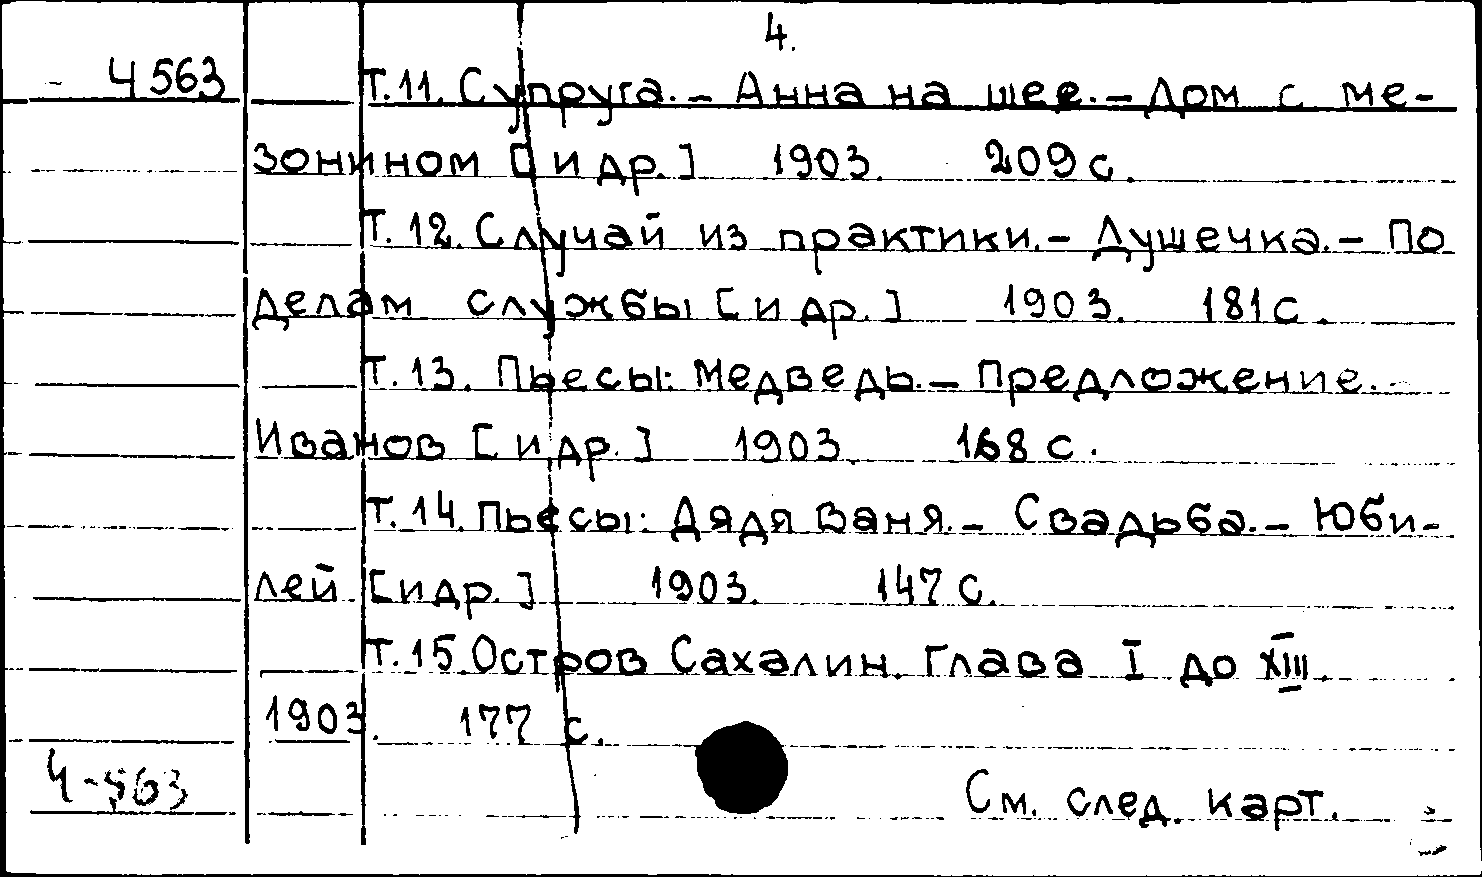 4.
Ч 563
Т.11. Супруга.- Анна на шее.- Дом с ме-
зонином [и др.] 1903. 209 с.
Т.12. Случай из практики.- Душечка.- По
делам службы [и др.] 1903. 181 с.
Т.13. Пьесы: Медведь.- Предложение.-
Иванов [и др.] 1903. 168 с.
Т.14. Пьесы: Дядя Ваня.- Свадьба.- Юби-
лей [и др.] 1903. 147 с.
Т.15 Остров Сахалин. Глава I до XIII.
1903. 177 с.
Ч-563
См. след. карт.